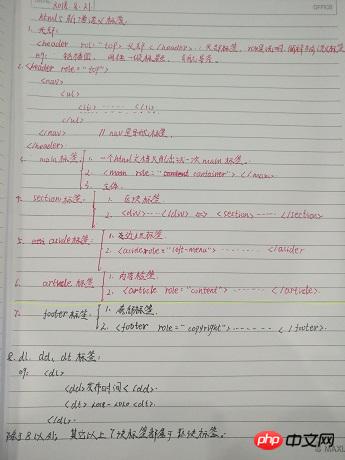 OFFICE
2018. 8. 21
html5 新增语义标签
1. 头部:
<header role="top"> 头部 </header>
2. <header role="top">
<nav>
<ul>
<li> ...... </li>
</ul>
</nav> // nav是导航标签
</header>
main标签 1. 一个html文档只能出现一次main标签.
2. <main role="container"></main>
3. 主体.
4. section标签 1. 区块标签
2. <div>....</div> <=> <section>......</section>
5. aside标签: 1. 左边栏标签
2. <aside role="left-menu">......</aside
6. article标签 1. 内容标签
2. <article role="content">......</article>.
7. footer标签: 1. 底部标签.
2. <footer role="copyright">......</footer>.
8. dl. dd. dt 标签:
eg: <dl>
<dd>发布时间<dd>
<dt> <dt>
</dl>
除了8以外, 其它以上7块标签都属于区块标签.
php 中文网
MAXL